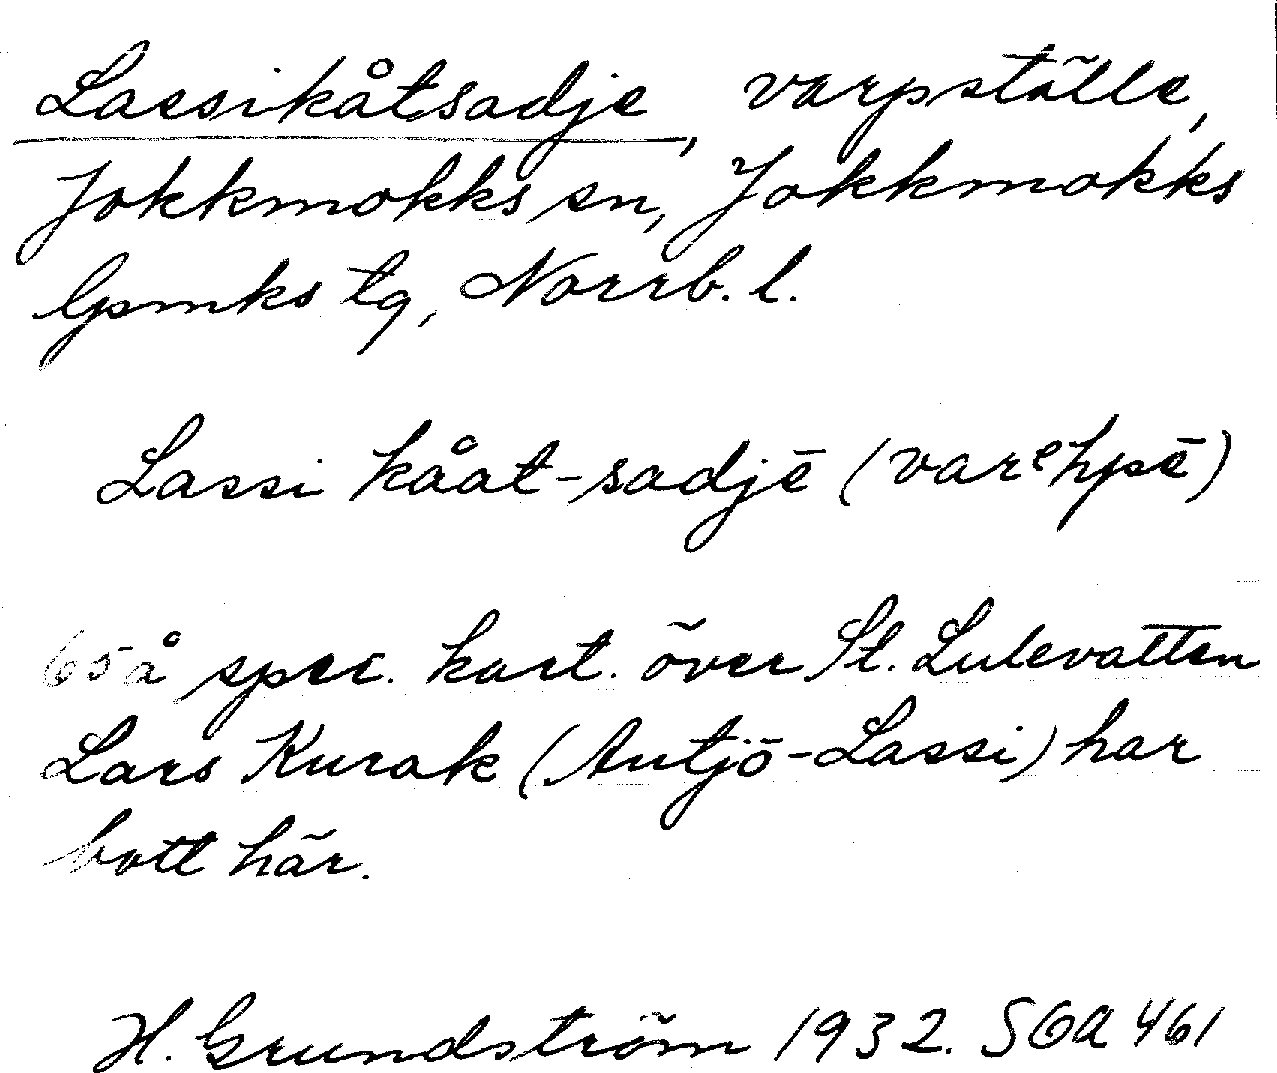 Lassikåtsadje, varpställe,
Jokkmokks sn, Jokkmokks
lpmks tg, Norrb. l.
Lassi kåat-sadjē (varᵉhpē)
65 å spec. kart. över St. Lulevatten
Lars Kurak (Antjō-Lassi) har
bott här.
H. Grundström 1932. SOA 461